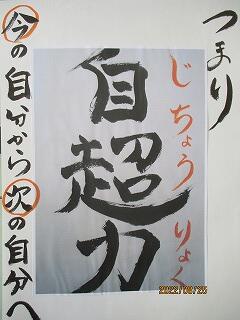 つまり
じちょうりょく
自超力
今の自分から次の自分へ
2022/08/25